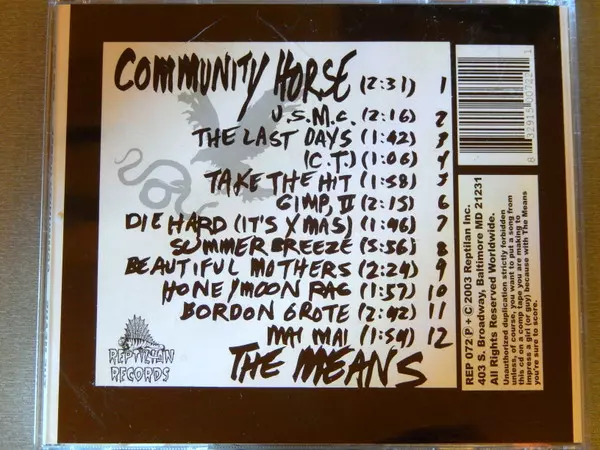 COMMUNITY HORSE (2:31) 1
U.S.M.C. (2:16) 2
THE LAST DAYS (1:42) 3
(C.T.) (1:06) 4
TAKE THE HIT (1:58) 5
GIMP, II (2:15) 6
DIE HARD (IT'S XMAS) (1:46) 7
SUMMER BREEZE (3:56) 8
BEAUTIFUL MOTHERS (2:24) 9
HONEYMOON RAG (1:57) 10
BORDON GROTE (2:42) 11
MAI MAI (1:59) 12
THE MEANS
REPTILIAN
RECORDS
REP 072 P + C 2003 Reptilian Inc.
403 S. Broadway, Baltimore MD 21231
All Rights Reserved Worldwide.
Unauthorized duplication strictly forbidden
unless, of course, you want to put a song from
this cd on a comp tape you are making to
impress a girl (or guy) because with The Means
you're sure to score.